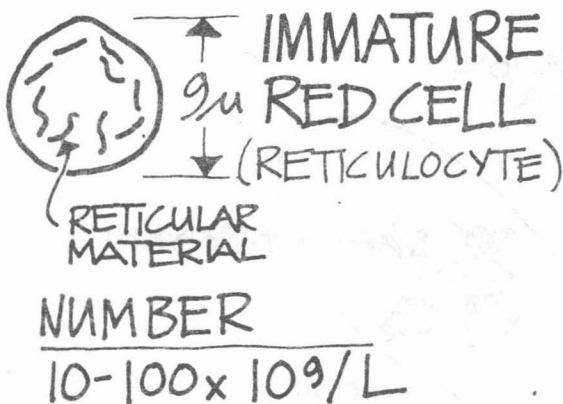 IMMATURE
9u RED CELL
(RETICULOCYTE)
RETICULAR
MATERIAL
NUMBER
10-100x 10⁹/L